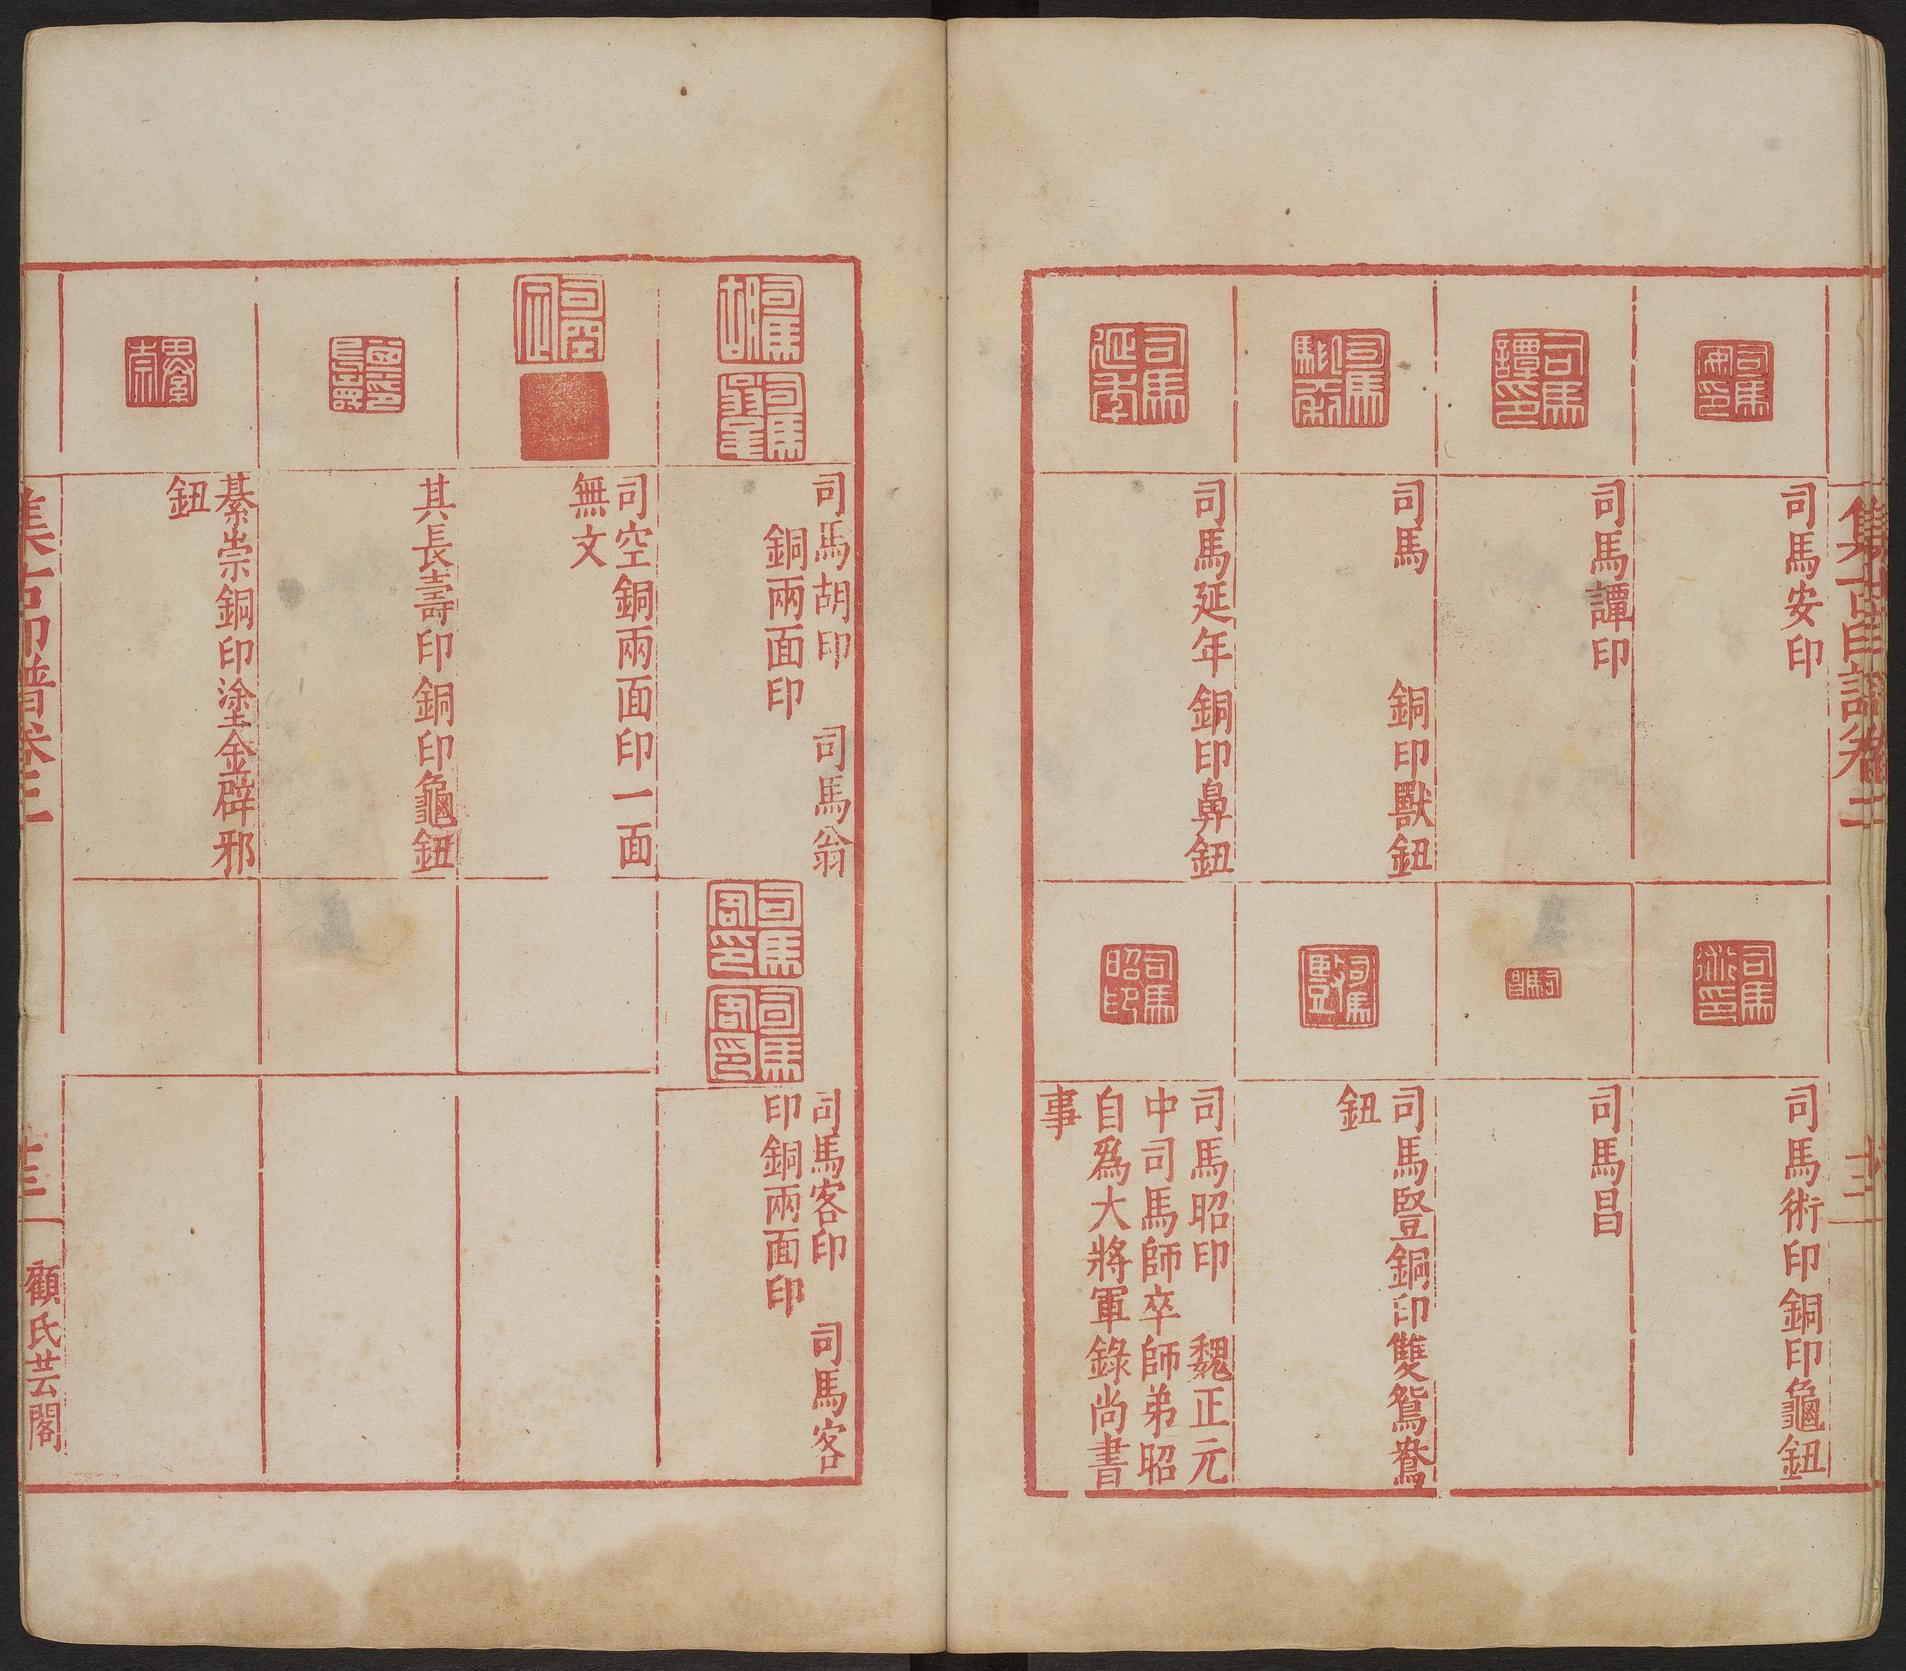 集古印譜卷二
司馬安印
司馬譚印
司馬　　銅印獸鈕
司馬延年銅印鼻鈕
司馬術印銅印龜鈕
司馬昌
司馬豎銅印雙鴛鴦
鈕
司馬昭印　魏正元
中司馬師卒師弟昭
自爲大將軍錄尚書
事
司馬胡印　司馬翁
銅兩面印
司空銅兩面印一面
無文
其長壽印銅印龜鈕
綦崇銅印塗金辟邪
鈕
司馬客印　司馬客
印銅兩面印
顧氏芸閣